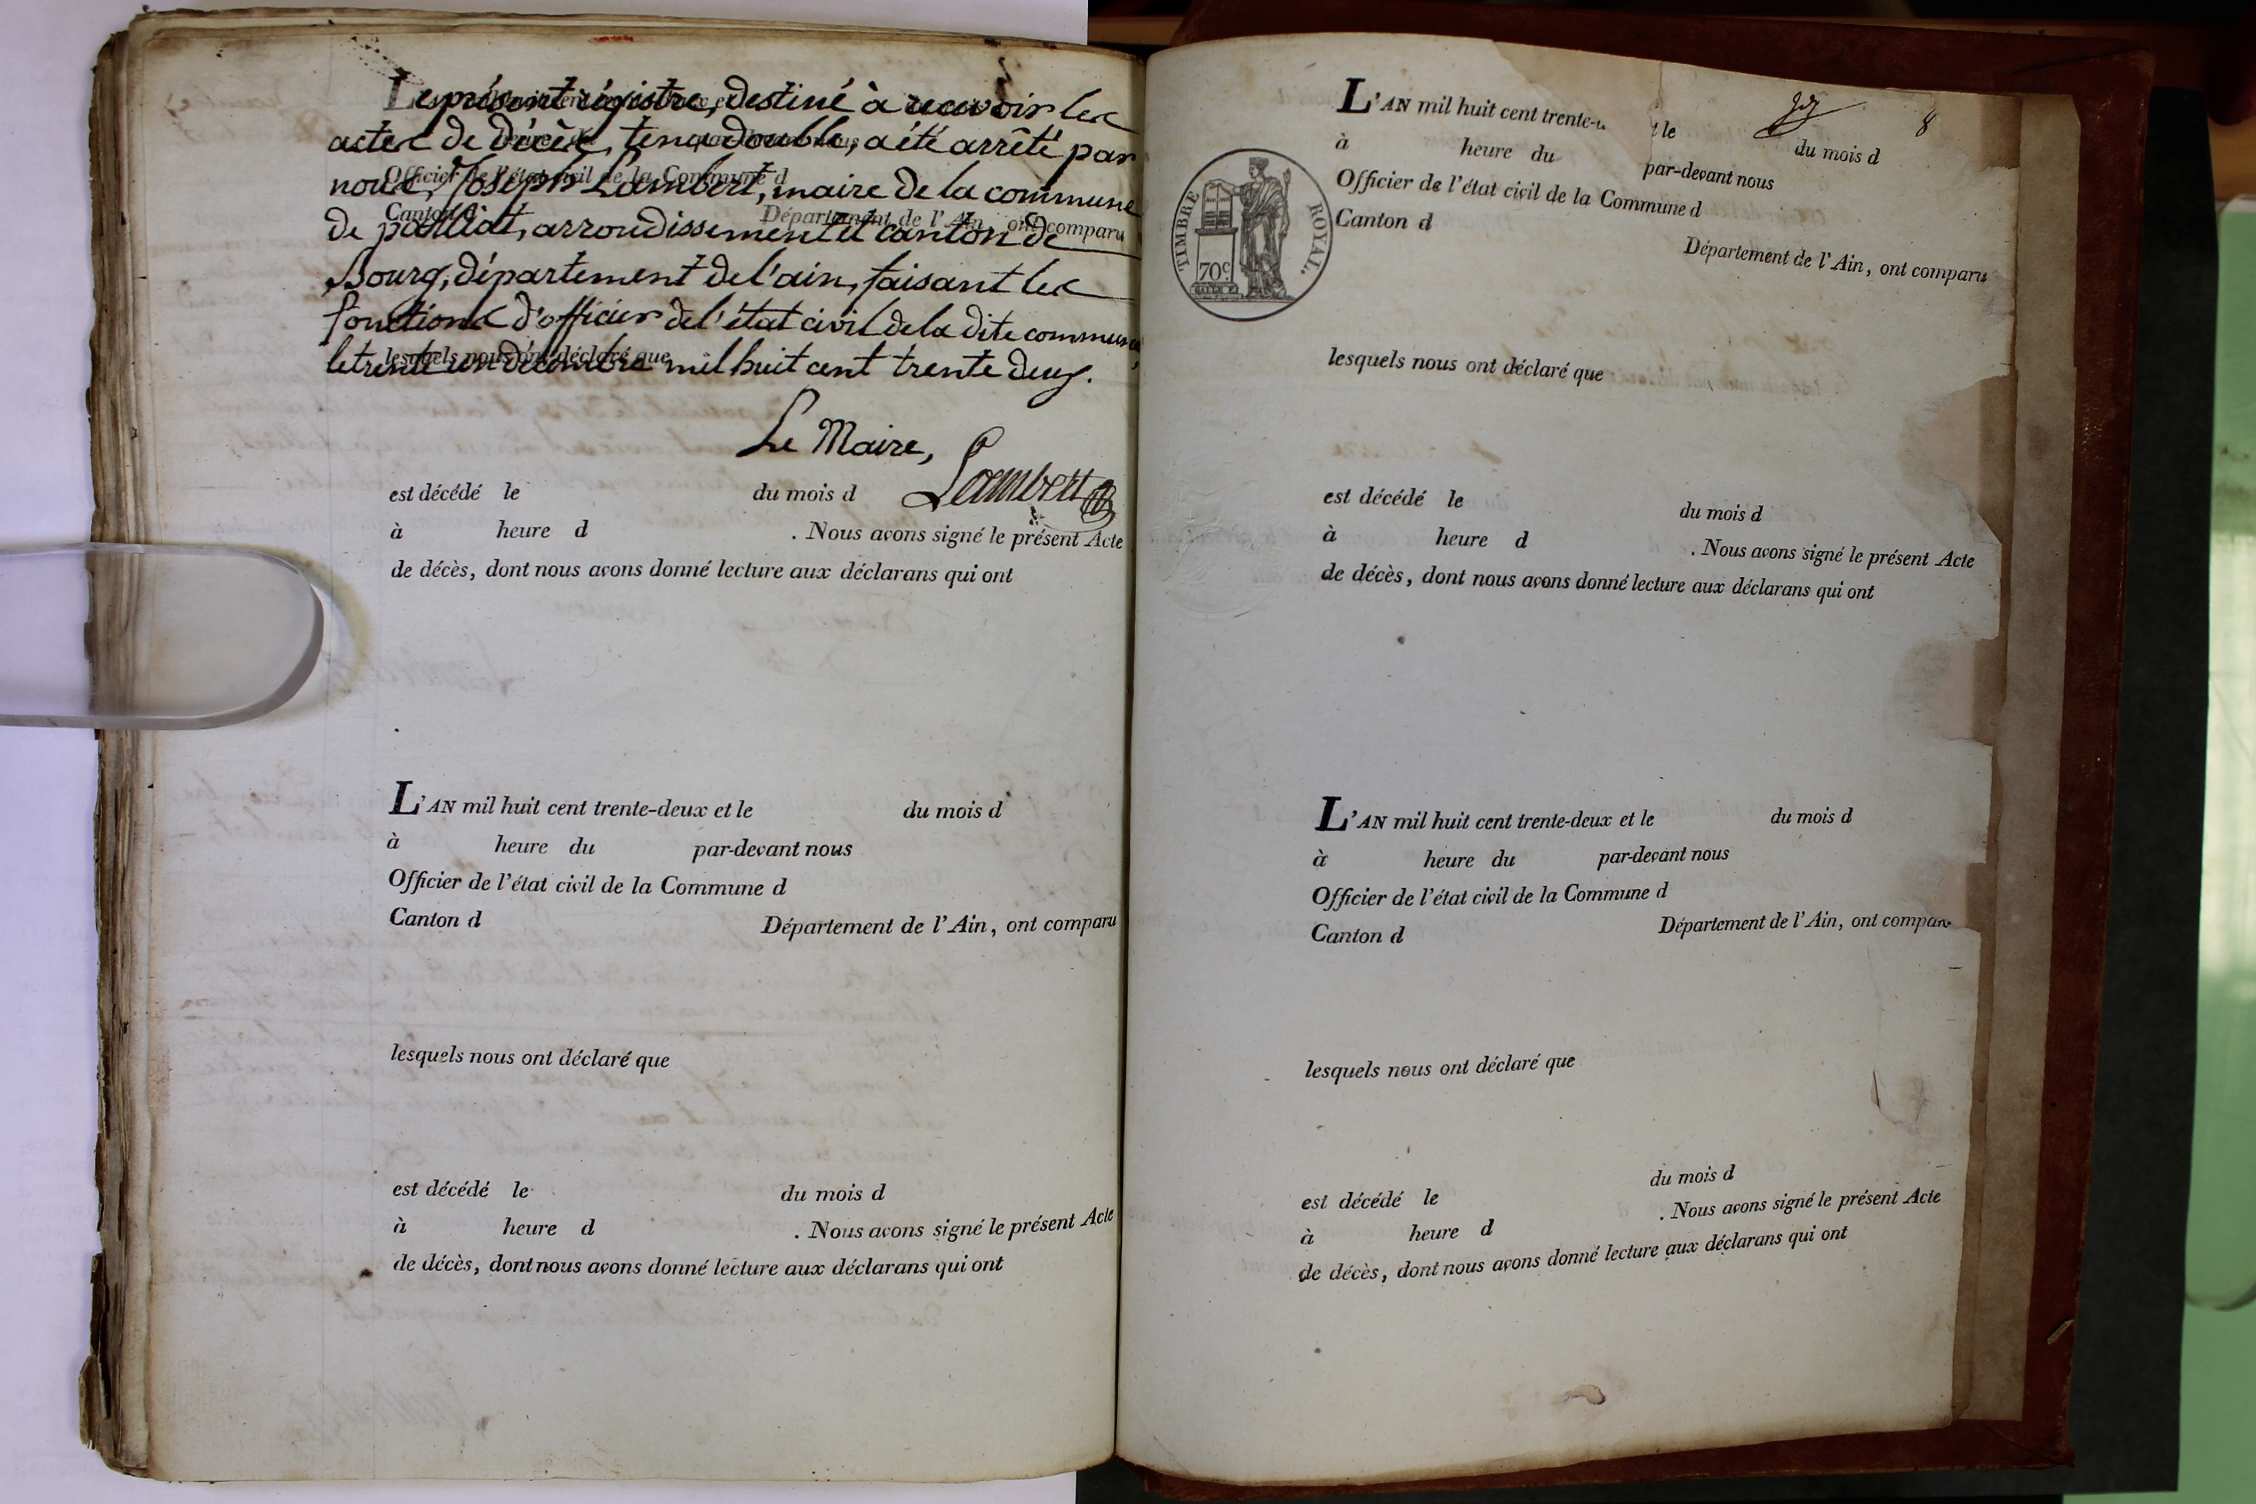 Le présent régistre, destiné à recevoir les
actes de décès, tenu double, a été arrêté par
nous, Joseph Lambert, maire de la commune
de polliat, arrondissement et canton de
Bourg, département de l'ain, faisant les
fonctions d'officier de l'état civil de la dite commune,
le trente un décembre mil huit cent trente deux.
Le Maire,
Lambert
Officier de l'état civil de la Commune d
Canton d Département de l'Ain, ont comparu
lesquels nous ont déclaré que
est décédé le du mois d
à heure d . Nous avons signé le présent Acte
de décès, dont nous avons donné lecture aux déclarans qui ont
L'AN mil huit cent trente-deux et le du mois d
à heure du par-devant nous
Officier de l'état civil de la Commune d
Canton d Département de l'Ain, ont comparu
lesquels nous ont déclaré que
est décédé le du mois d
à heure d . Nous avons signé le présent Acte
de décès, dont nous avons donné lecture aux déclarans qui ont
8
L'AN mil huit cent trente- le du mois d
à heure du par-devant nous
Officier de l'état civil de la Commune d
Canton d Département de l'Ain, ont comparu
TIMBRE ROYAL.
70c.
lesquels nous ont déclaré que
est décédé le du mois d
à heure d . Nous avons signé le présent Acte
de décès, dont nous avons donné lecture aux déclarans qui ont
L'AN mil huit cent trente-deux et le du mois d
à heure du par-devant nous
Officier de l'état civil de la Commune d
Canton d Département de l'Ain, ont compar
lesquels nous ont déclaré que
est décédé le du mois d
à heure d . Nous avons signé le présent Acte
de décès, dont nous avons donné lecture aux déclarans qui ont